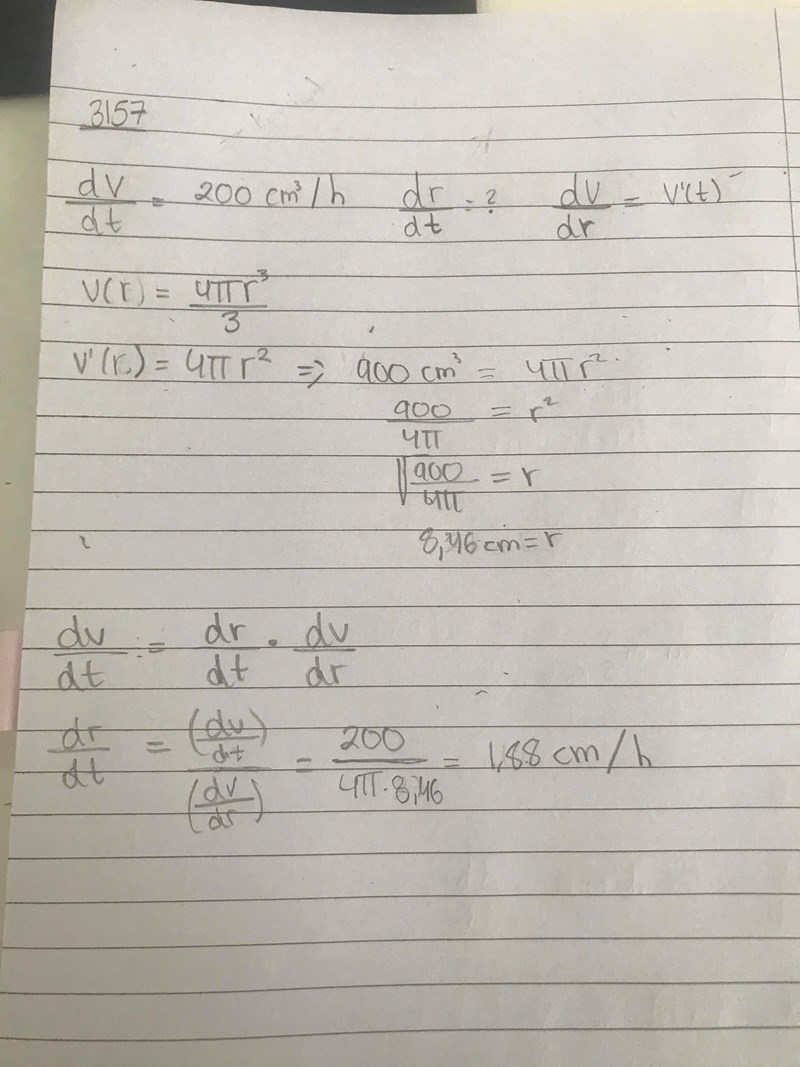 3157
dV/dt = 200 cm³/h dr/dt = ? dV/dr = V'(t)
V(r) = 4πr³/3
V'(r) = 4πr² ⇒ 900 cm³ = 4πr²
900/4π = r²
√900/4π = r
8,46 cm = r
dv/dt = dr/dt · dv/dr
dr/dt = (dv/dt)/(dv/dr) = 200/4π·8,46 = 1,88 cm/h